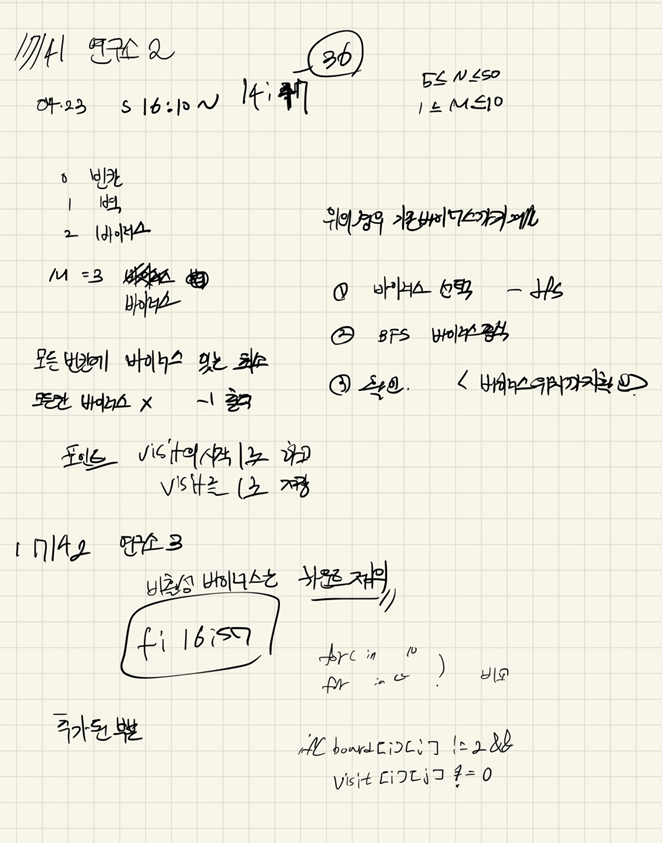 17141 연구소 2
36
04.23 s 16:10 ~
5 ≤ N ≤ 50
1 ≤ M ≤ 10
0 빈칸
1 벽
2 바이러스
M = 3
바이러스
① 바이러스 선택 - dfs
② BFS 바이러스 증식
③ 확인. < 바이러스 위치까지 확인
모든 빈칸에 바이러스 있는 최소
모든칸 바이러스 X -1 출력
포인트 visit의 시작 1로 하고
visit를 1로 저장
17142 연구소 3
비활성 바이러스는 카운트 제외
fi 16:57
for( in
for in
비교
추가된 부분
if( board[i][j] != 2 &&
visit[i][j] == 0